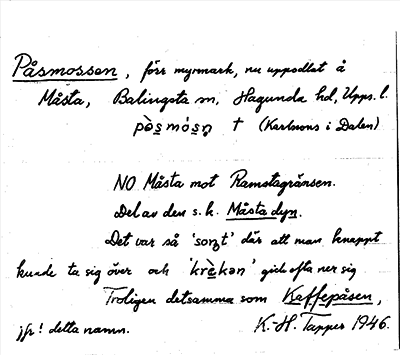 Påsmossen, förr myrmark, nu uppodlat å
Måsta, Balingsta sn, Hagunda hd, Upps. l.
pòsmósn † (Karlssons i Dalen)
NO Måsta mot Ramstagränsen.
Del av den s.k. Måsta dyn.
Det var så 'sorgt' där att man knappt
kunde ta sig över och 'krèkən' gick ofta ner sig
Troligen detsamma som Kaffepåsen,
jfr! detta namn. K.-H. Tapper 1946.